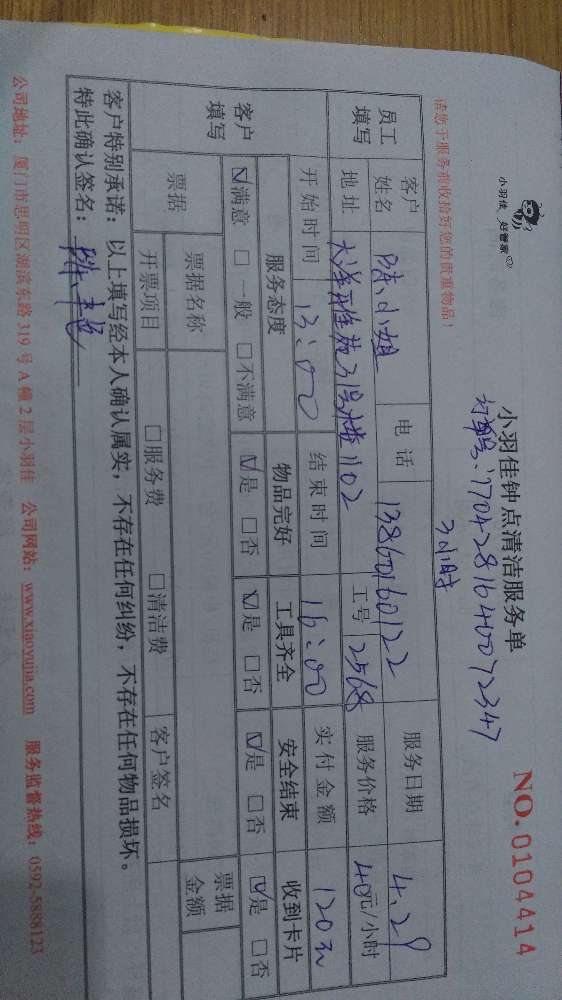 小羽佳 好管家
小羽佳钟点清洁服务单
NO. 0104414
订单号:17704281640072347
请您于服务前收拾好您的贵重物品!
3小时
员工填写 客户姓名 陈小姐 电话 13860160122 服务日期 4.29
地址 1102 工号 2568 服务价格 40元/小时
开始时间 13:00 结束时间 16:00 实付金额 120元
客户填写 服务态度 物品完好 工具齐全 安全结束 收到卡片
☑满意 □一般 □不满意 ☑是 □否 ☑是 □否 ☑是 □否 ☑是 □否
票据 票据名称 票据金额
开票项目 □服务费 □清洁费 客户签名
客户特别承诺:以上填写经本人确认属实,不存在任何纠纷,不存在任何物品损坏。
特此确认签名:
公司地址:厦门市思明区湖滨东路319号A幢2层小羽佳 公司网站:www.xiaoyujia.com 服务监督热线:0592-5888123